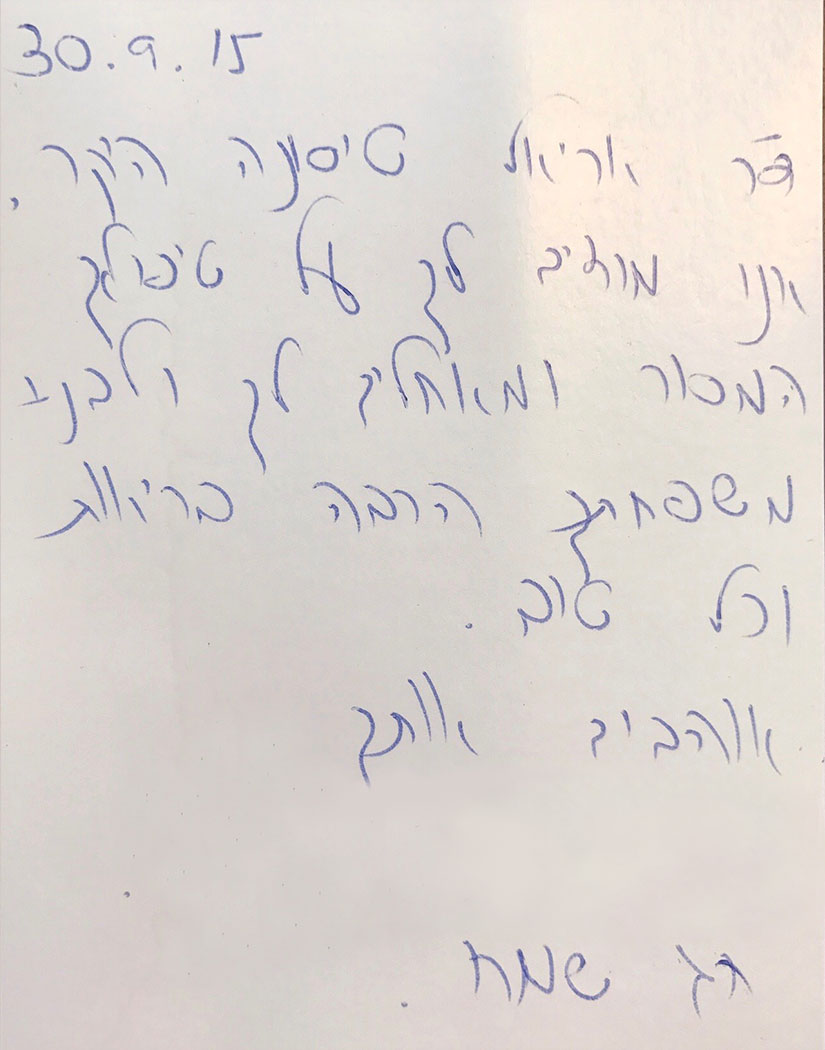 30.9.15
דר אריאל טיסונה היקר,
אנו מודים לך על טיפולך
המסור ומאחלים לך ולבני
משפחתך הרבה בריאות
וכל טוב.
אוהבים אותך
חג שמח.